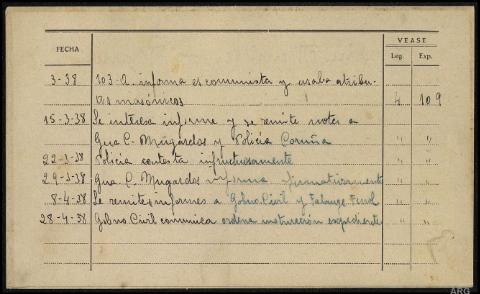 FECHA
VEASE
Leg. Exp.
3-38 103-A. informa es comunista y usaba atribu-
tos masónicos 4 109
15-3-38 Se interesa informe y se remite notes a
Gua C. Mugardos y Policia Coruña " "
22-3-38 Policia contesta infructuosamente " "
29-3-38 Gua. C. Mugardos informa afirmativamente " "
8-4-38 Se remite informes a Gobno. Civil y Falange Ferrol " "
28-4-38 Gobno Civil comunica ordena instrucción expediente " "
ARG